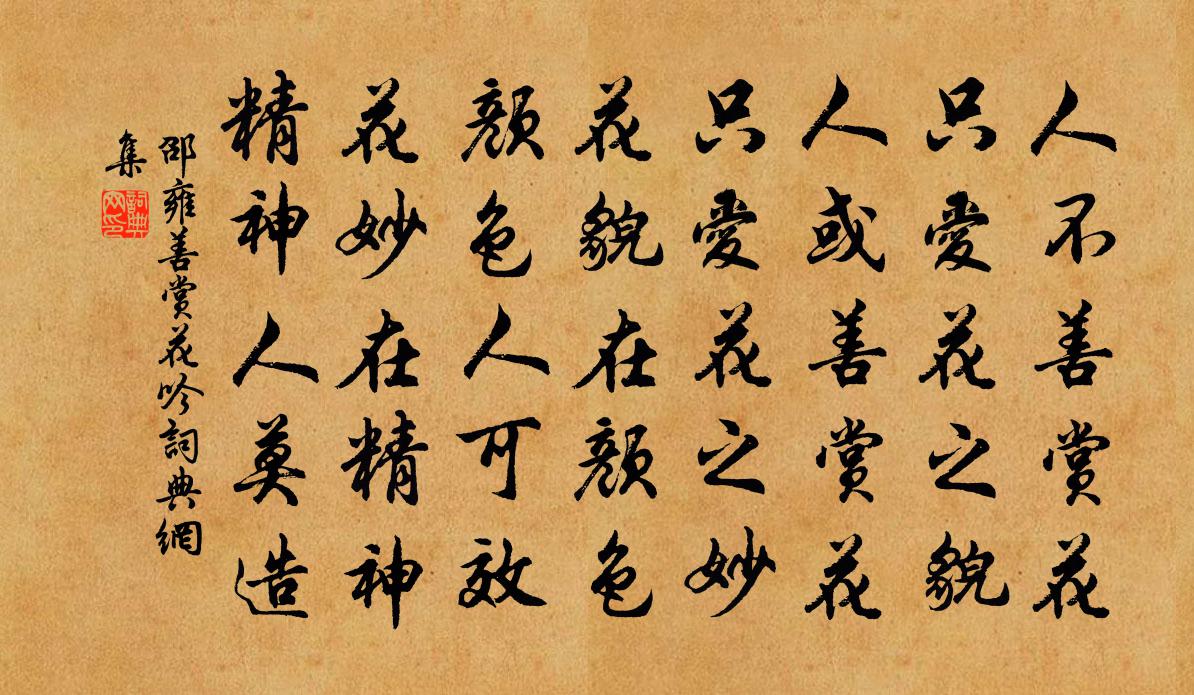 人不善賞花
只愛花之貌
人或善賞花
只愛花之妙
花貌在顏色
顏色人可效
花妙在精神
精神人莫造
邵雍善賞花吟詞典網
集
詞典
网印